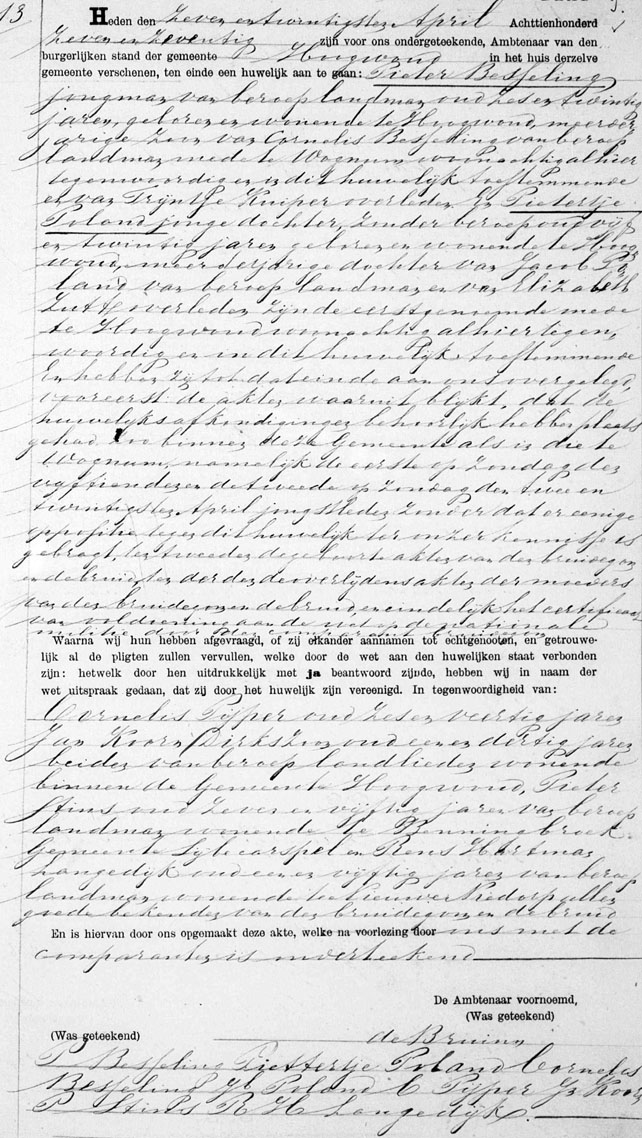 13
Heden den Zeven en twintigsten April Achttienhonderd
Zeven en Zeventig zijn voor ons ondergeteekende, Ambtenaar van den
burgerlijken stand der gemeente Hoogwoud in het huis derzelve
gemeente verschenen, ten einde een huwelijk aan te gaan: Pieter Besseling
jongman van beroep landman oud Zes en twintig
jaren, geboren en wonende te Hoogwoud, meerder
jarige Zoon van Cornelis Besseling van beroep
landman mede te Wognum woonachtig alhier
tegenwoordig en in dit huwelijk toestemmende
en van Trijntje Kuiper overleden En Pietertje
Poland jonge dochter, Zonder beroep oud vijf
en twintig jaren geboren en wonende te Hoog
woud, meerderjarige dochter van Jacob Po
land van beroep landman en van Elizabeth
Zutt overleden Zijnde eerstgenoemde mede
te Hoogwoud woonachtig alhier tegen,
woordig en in dit huwelijk toestemmende
En hebben zij tot dat einde aan ons overgelegd,
vooreerst de akten waaruit blijkt, dat de
huwelijksafkondigingen behoorlijk hebben plaats
gehad Zoo binnen deze Gemeente als in die te
Wognum, namelijk de eerste op Zondag den
vijftienden en de tweede op Zondag den twee en
twintigsten April jongstleden Zonder dat er eenige
oppositie tegen dit huwelijk ter onzer kennisse is
gebragt, ten tweeden de geboorte akten van den bruidegom
en de bruid ten derden de overlijdens akten der moeders
van den bruidegom en de bruid en eindelijk het certificaat
van voldoening aan de wet op de nationale
militie door den comparant bruidegom
Waarna wij hun hebben afgevraagd, of zij elkander aannamen tot echtgenooten, en getrouwe-
lijk al de pligten zullen vervullen, welke door de wet aan den huwelijken staat verbonden
zijn: hetwelk door hen uitdrukkelijk met ja beantwoord zijnde, hebben wij in naam der
wet uitspraak gedaan, dat zij door het huwelijk zijn vereenigd. In tegenwoordigheid van:
Cornelis Pijper oud Zes en veertig jaren
Jan Koorn Dirkszoon oud een en dertig jaren
beiden van beroep landlieden wonende
binnen de Gemeente Hoogwoud, Pieter
Stins oud Zeven en vijftig jaren van beroep
landman wonende te Benningbroek
Gemeente Sijbecarspel en Rens Hartman
Langedijk oud een en vijftig jaren van beroep
landman wonende te Nieuwe Niedorp allen
goede bekenden van den bruidegom en de bruid
En is hiervan door ons opgemaakt deze akte, welke na voorlezing door ons met de
comparanten is onderteekend
De Ambtenaar voornoemd,
(Was geteekend)
(Was geteekend) de Bruin
P Besseling Pietertje Poland Cornelis
Besseling Jb Poland C Pijper Jn Koorn
P Stins R H Langedijk